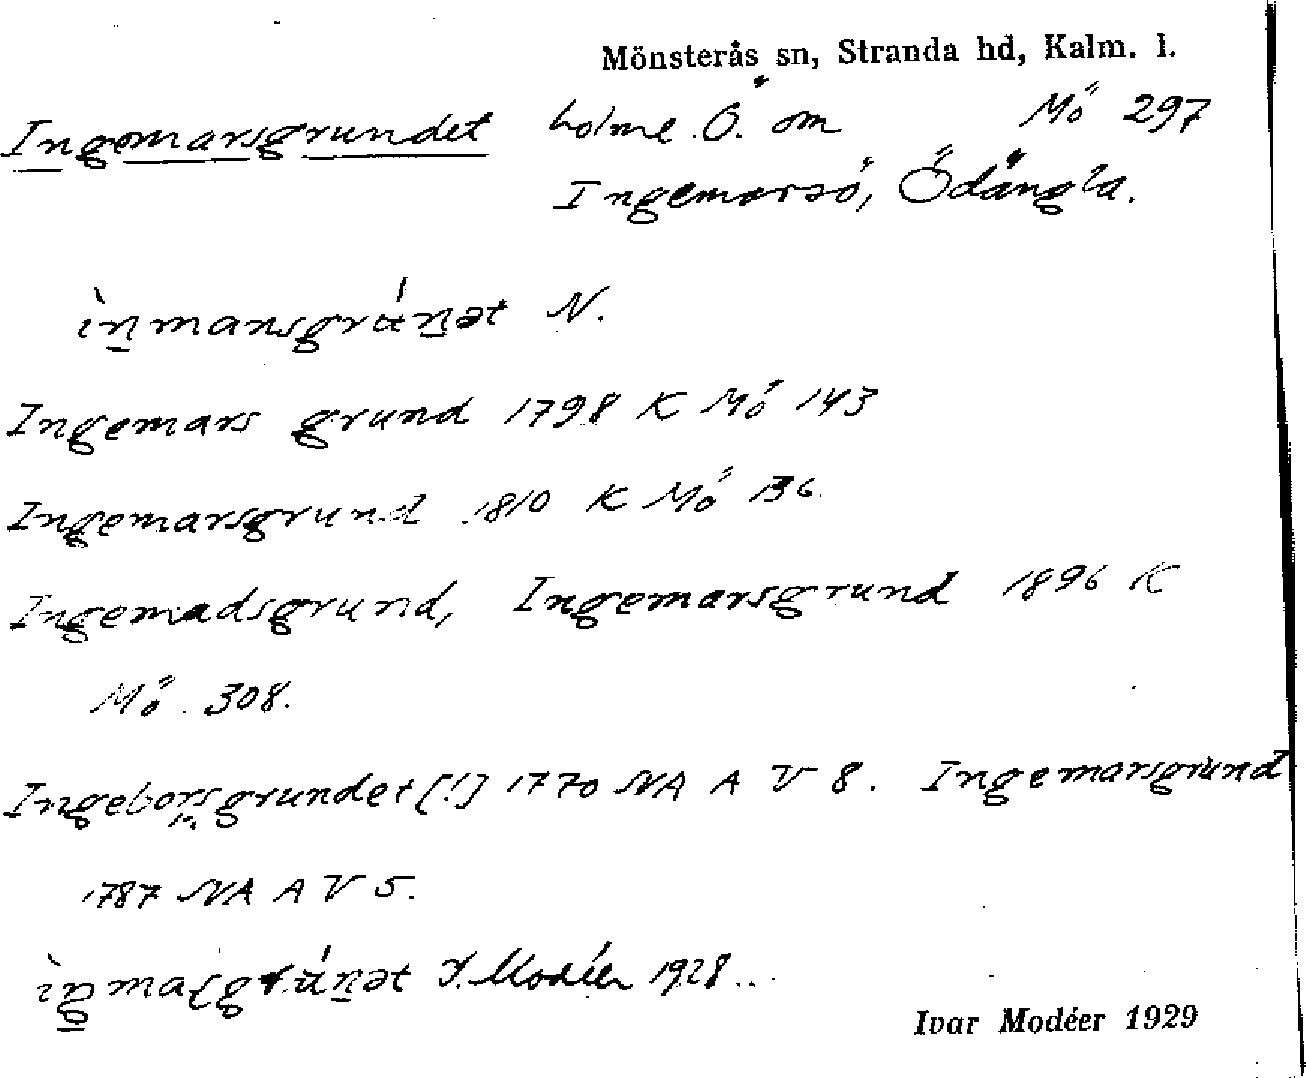 Mönsterås sn, Stranda hd, Kalm. l.
Ingemarsgrundet holme Ö. om Mö 297
Ingemarsö, Ödängla.
ìṉmansgrúṉət N.
Ingemars grund 1798 K Mö 143
Ingemarsgrund 1810 K Mö 136.
Ingemadsgrund, Ingemarsgrund 1896 K
Mö 308.
Ingeborsgrundet [!] 1770 NA A V 8. Ingemarsgrund
1787 NA A V 5.
I. Modéer 1928.
Ivar Modéer 1929